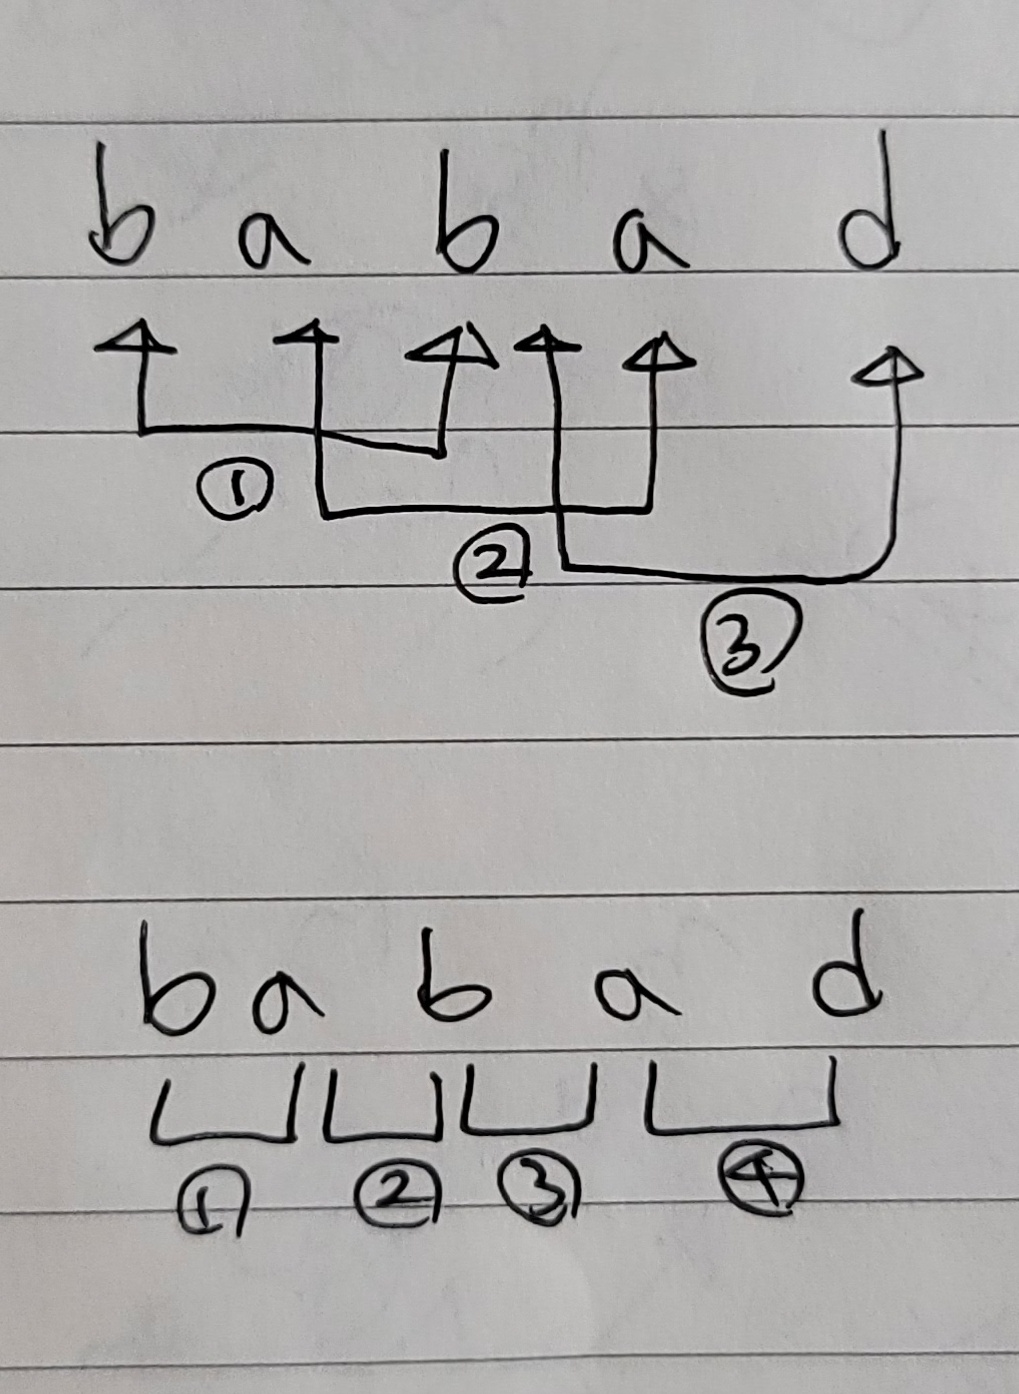 b a b a d
① ② ③
b a b a d
① ② ③ ④